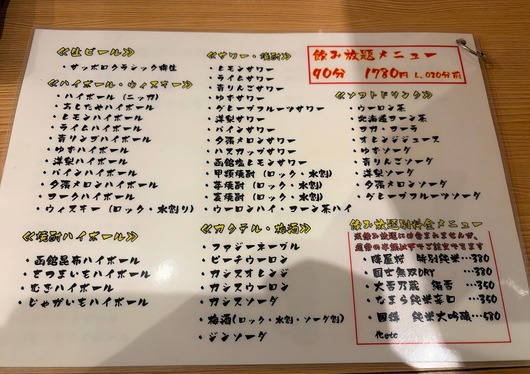 ≪生ビール≫
・サッポロクラシック樽生
≪ハイボール・ウィスキー≫
・ハイボール(ニッカ)
・おとちゃハイボール
・レモンハイボール
・ライムハイボール
・青リンゴハイボール
・ゆずハイボール
・洋梨ハイボール
・パインハイボール
・夕張メロンハイボール
・コークハイボール
・ウィスキー(ロック・水割り)
≪焼酎ハイボール≫
・函館昆布ハイボール
・さつまいもハイボール
・むぎハイボール
・じゃがいもハイボール
≪サワー・焼酎≫
・レモンサワー
・ライムサワー
・青りんごサワー
・ゆずサワー
・グレープフルーツサワー
・洋梨サワー
・パインサワー
・夕張メロンサワー
・ハスカップサワー
・函館塩レモンサワー
・甲類焼酎(ロック・水割)
・芋焼酎(ロック・水割)
・麦焼酎(ロック・水割)
・ウーロンハイ・コーン茶ハイ
≪カクテル・梅酒≫
・ファジーネーブル
・ピーチウーロン
・カシスオレンジ
・カシスウーロン
・カシスソーダ
・梅酒(ロック・水割・ソーダ割)
・ジンソーダ
飲み放題メニュー
90分 1780円 L.O20分前
≪ソフトドリンク≫
・ウーロン茶
・北海道コーン茶
・コカ・コーラ
・オレンジジュース
・ゆずソーダ
・青りんごソーダ
・洋梨ソーダ
・夕張メロンソーダ
・グレープフルーツソーダ
飲み放題別料金メニュー
・陣屋村 特別純米…380
・国士無双DRY …380
・なまら純米辛口 …350
・国稀 純米大吟醸…580
他etc